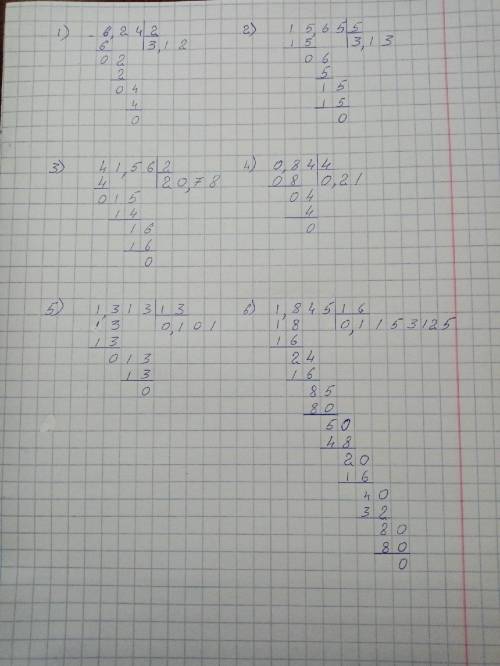 1) - 6,24 | 2
6 3,12
02
2
04
4
0
2) 15,65 | 5
15 3,13
06
5
15
15
0
3) 41,56 | 2
4 20,78
015
14
16
16
0
4) 0,84 | 4
08 0,21
04
4
0
5) 1,313 | 13
13 0,101
13
013
13
0
6) 1,845 | 16
18 0,1153125
16
24
16
85
80
50
48
20
16
40
32
80
80
0